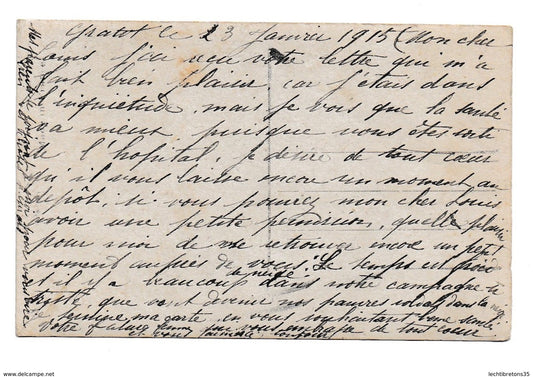 Gratot le 23 Janvier 1915 Mon cher
Louis j'ai reçu votre lettre qui m'a
fait bien plaisir car j'étais dans
l'inquiétude, mais je vois que la santé
va mieux puisque vous êtes sorti
de l'hôpital, je désire de tout cœur
qu'il vous laisse encore un moment au
dépôt, si vous pouviez mon cher Louis
avoir une petite permission, quelle plaisir
pour moi de me retrouver encore un petit
moment auprès de vous. Le temps est froid
la neige
et il y a beaucoup dans notre campagne
que vont devenir nos pauvres soldats dans la neige
je termine ma carte en vous souhaitant bonne santé
votre qui vous embrasse de tout cœur
et vous toujours
pour
lechtibretons35